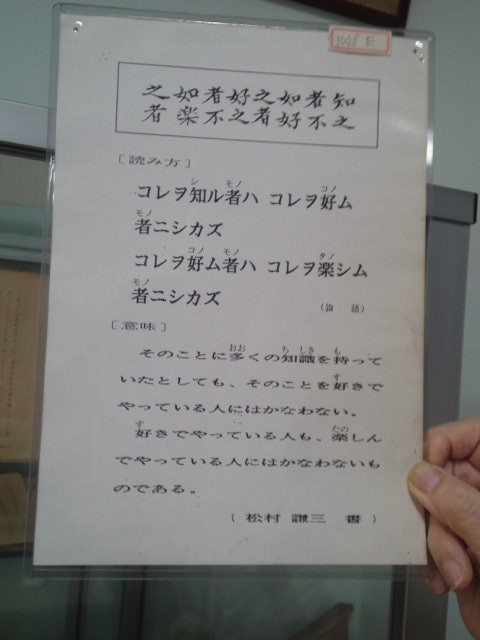 知之
者不
如好
之者
好之
者不
如楽
之者
[読み方]
シ モノ コノ
コレヲ知ル者ハ コレヲ好ム
モノ
者ニシカズ
コノ モノ タノ
コレヲ好ム者ハ コレヲ楽シム
モノ
者ニシカズ
(論 語)
[意味]
おお ち しき も
そのことに多くの知識を持って
す
いたとしても、そのことを好きで
やっている人にはかなわない。
す たの
好きでやっている人も、楽しん
でやっている人にはかなわないも
のである。
(松村 謙三 書)